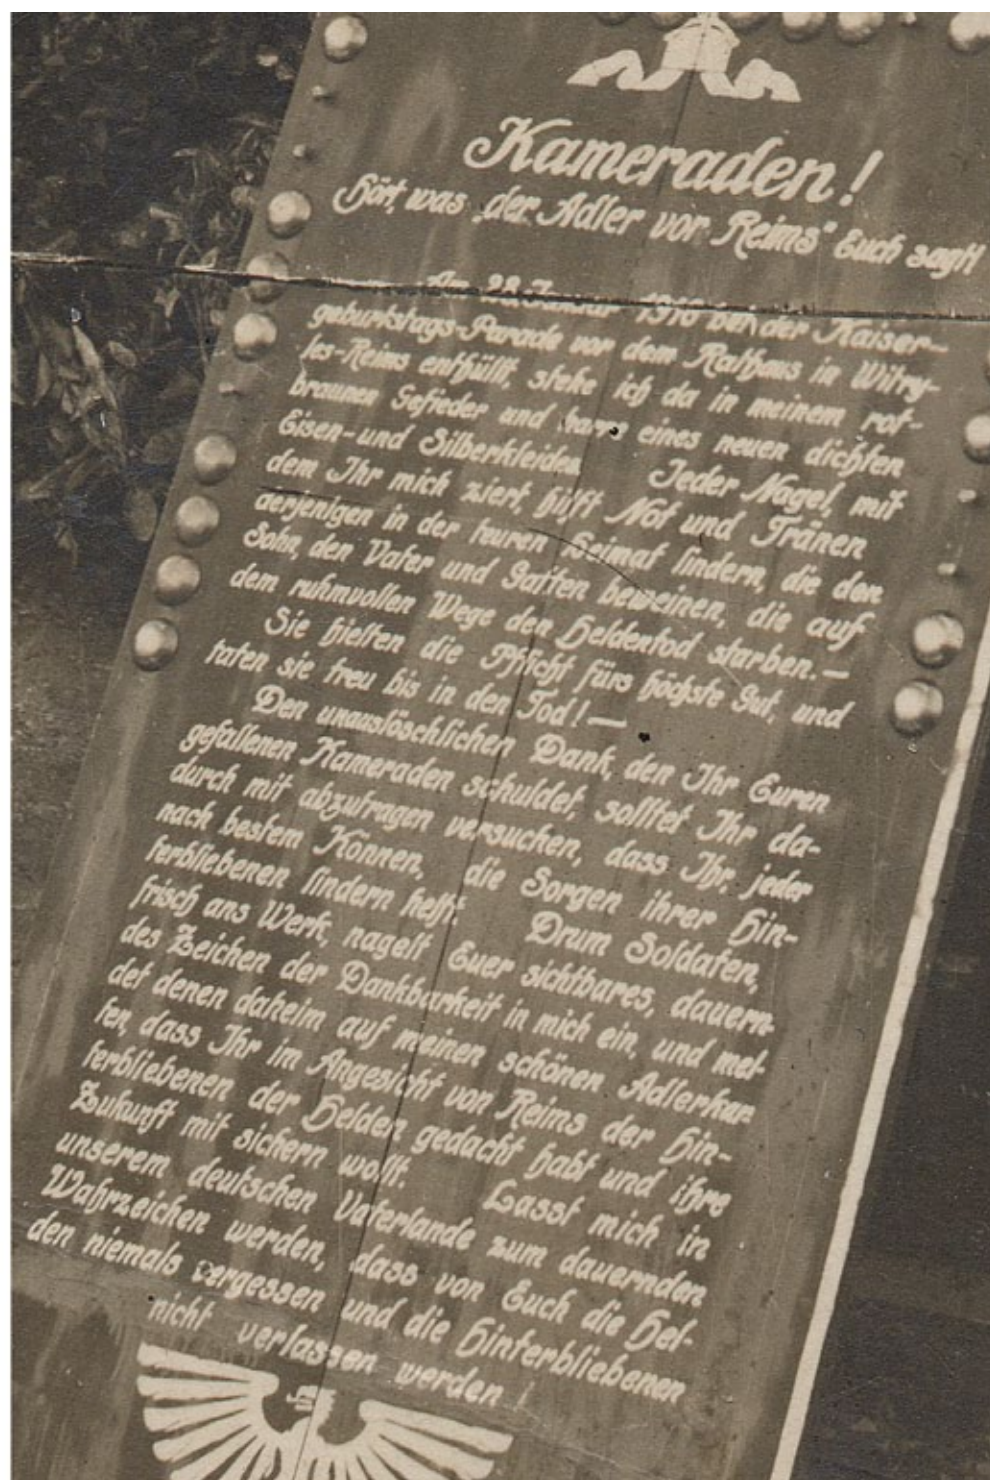 Kameraden!
Hört, was „der Adler vor Reims“ Euch sagt!
Am 28. Januar 1916 bei der Kaiser-
geburtstags-Parade vor dem Rathaus in Witry-
les-Reims enthüllt, stehe ich da in meinem rot-
braunen Gefieder und harre eines neuen dichten
Eisen- und Silberkleides. Jeder Nagel, mit
dem Ihr mich ziert, hilft Not und Tränen
derjenigen in der teuren Heimat lindern, die den
Sohn, den Vater und Gatten beweinen, die auf
dem ruhmvollen Wege den Heldentod starben. —
Sie hielten die Pflicht fürs höchste Gut, und
taten sie treu bis in den Tod! —
Den unauslöschlichen Dank, den Ihr Euren
gefallenen Kameraden schuldet, solltet Ihr da-
durch mit abzutragen versuchen, dass Ihr, jeder
nach bestem Können, die Sorgen ihrer Hin-
terbliebenen lindern helft. Drum Soldaten,
frisch ans Werk, nagelt Euer sichtbares, dauern-
des Zeichen der Dankbarkeit in mich ein, und mel-
det denen daheim auf meinen schönen Adlerkar-
ten, dass Ihr im Angesicht von Reims der Hin-
terbliebenen der Helden gedacht habt und ihre
Zukunft mit sichern wollt. Lasst mich in
unserem deutschen Vaterlande zum dauernden
Wahrzeichen werden, dass von Euch die Hel-
den niemals vergessen und die Hinterbliebenen
nicht verlassen werden!